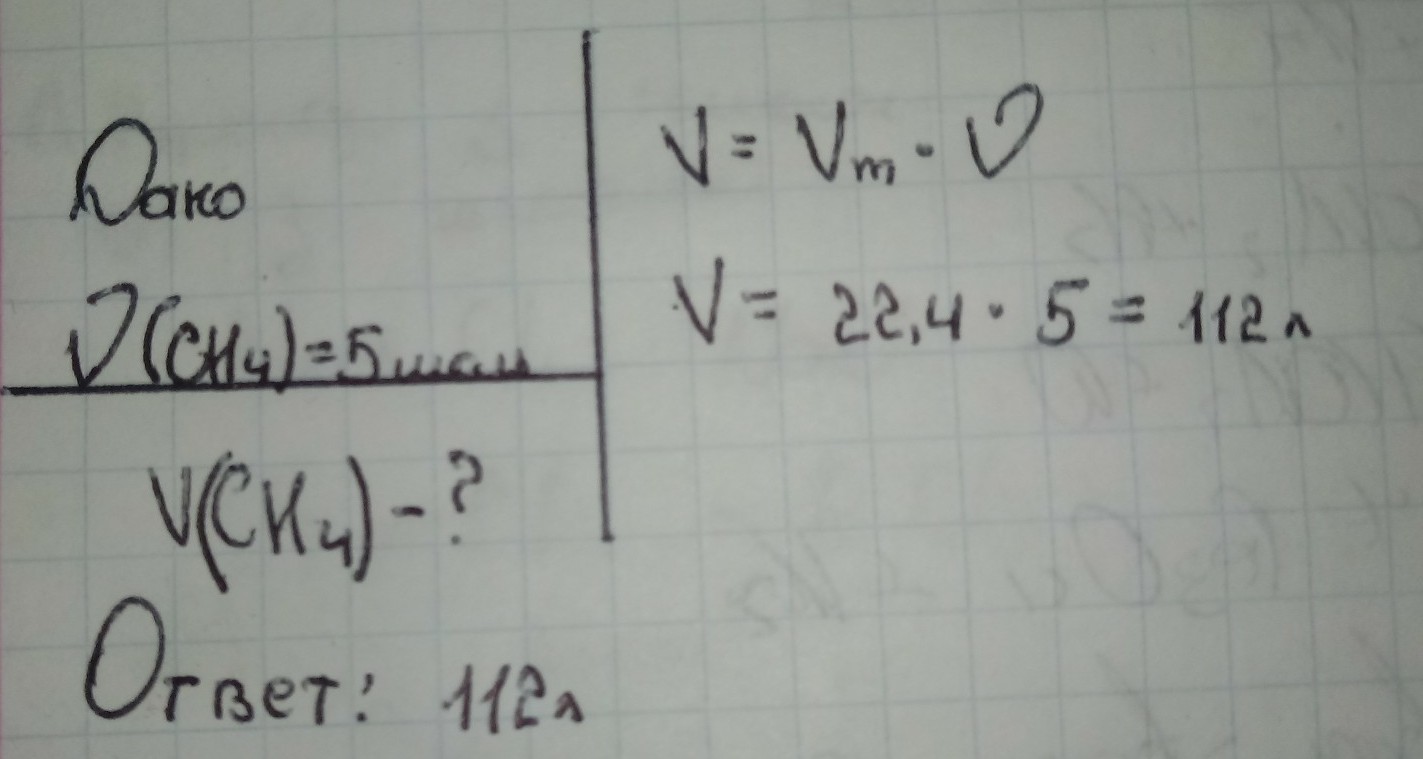 Дано
ν(CH₄)=5моль
V(CH₄)-?
V= Vm·ν
V= 22,4·5=112л
Ответ: 112л